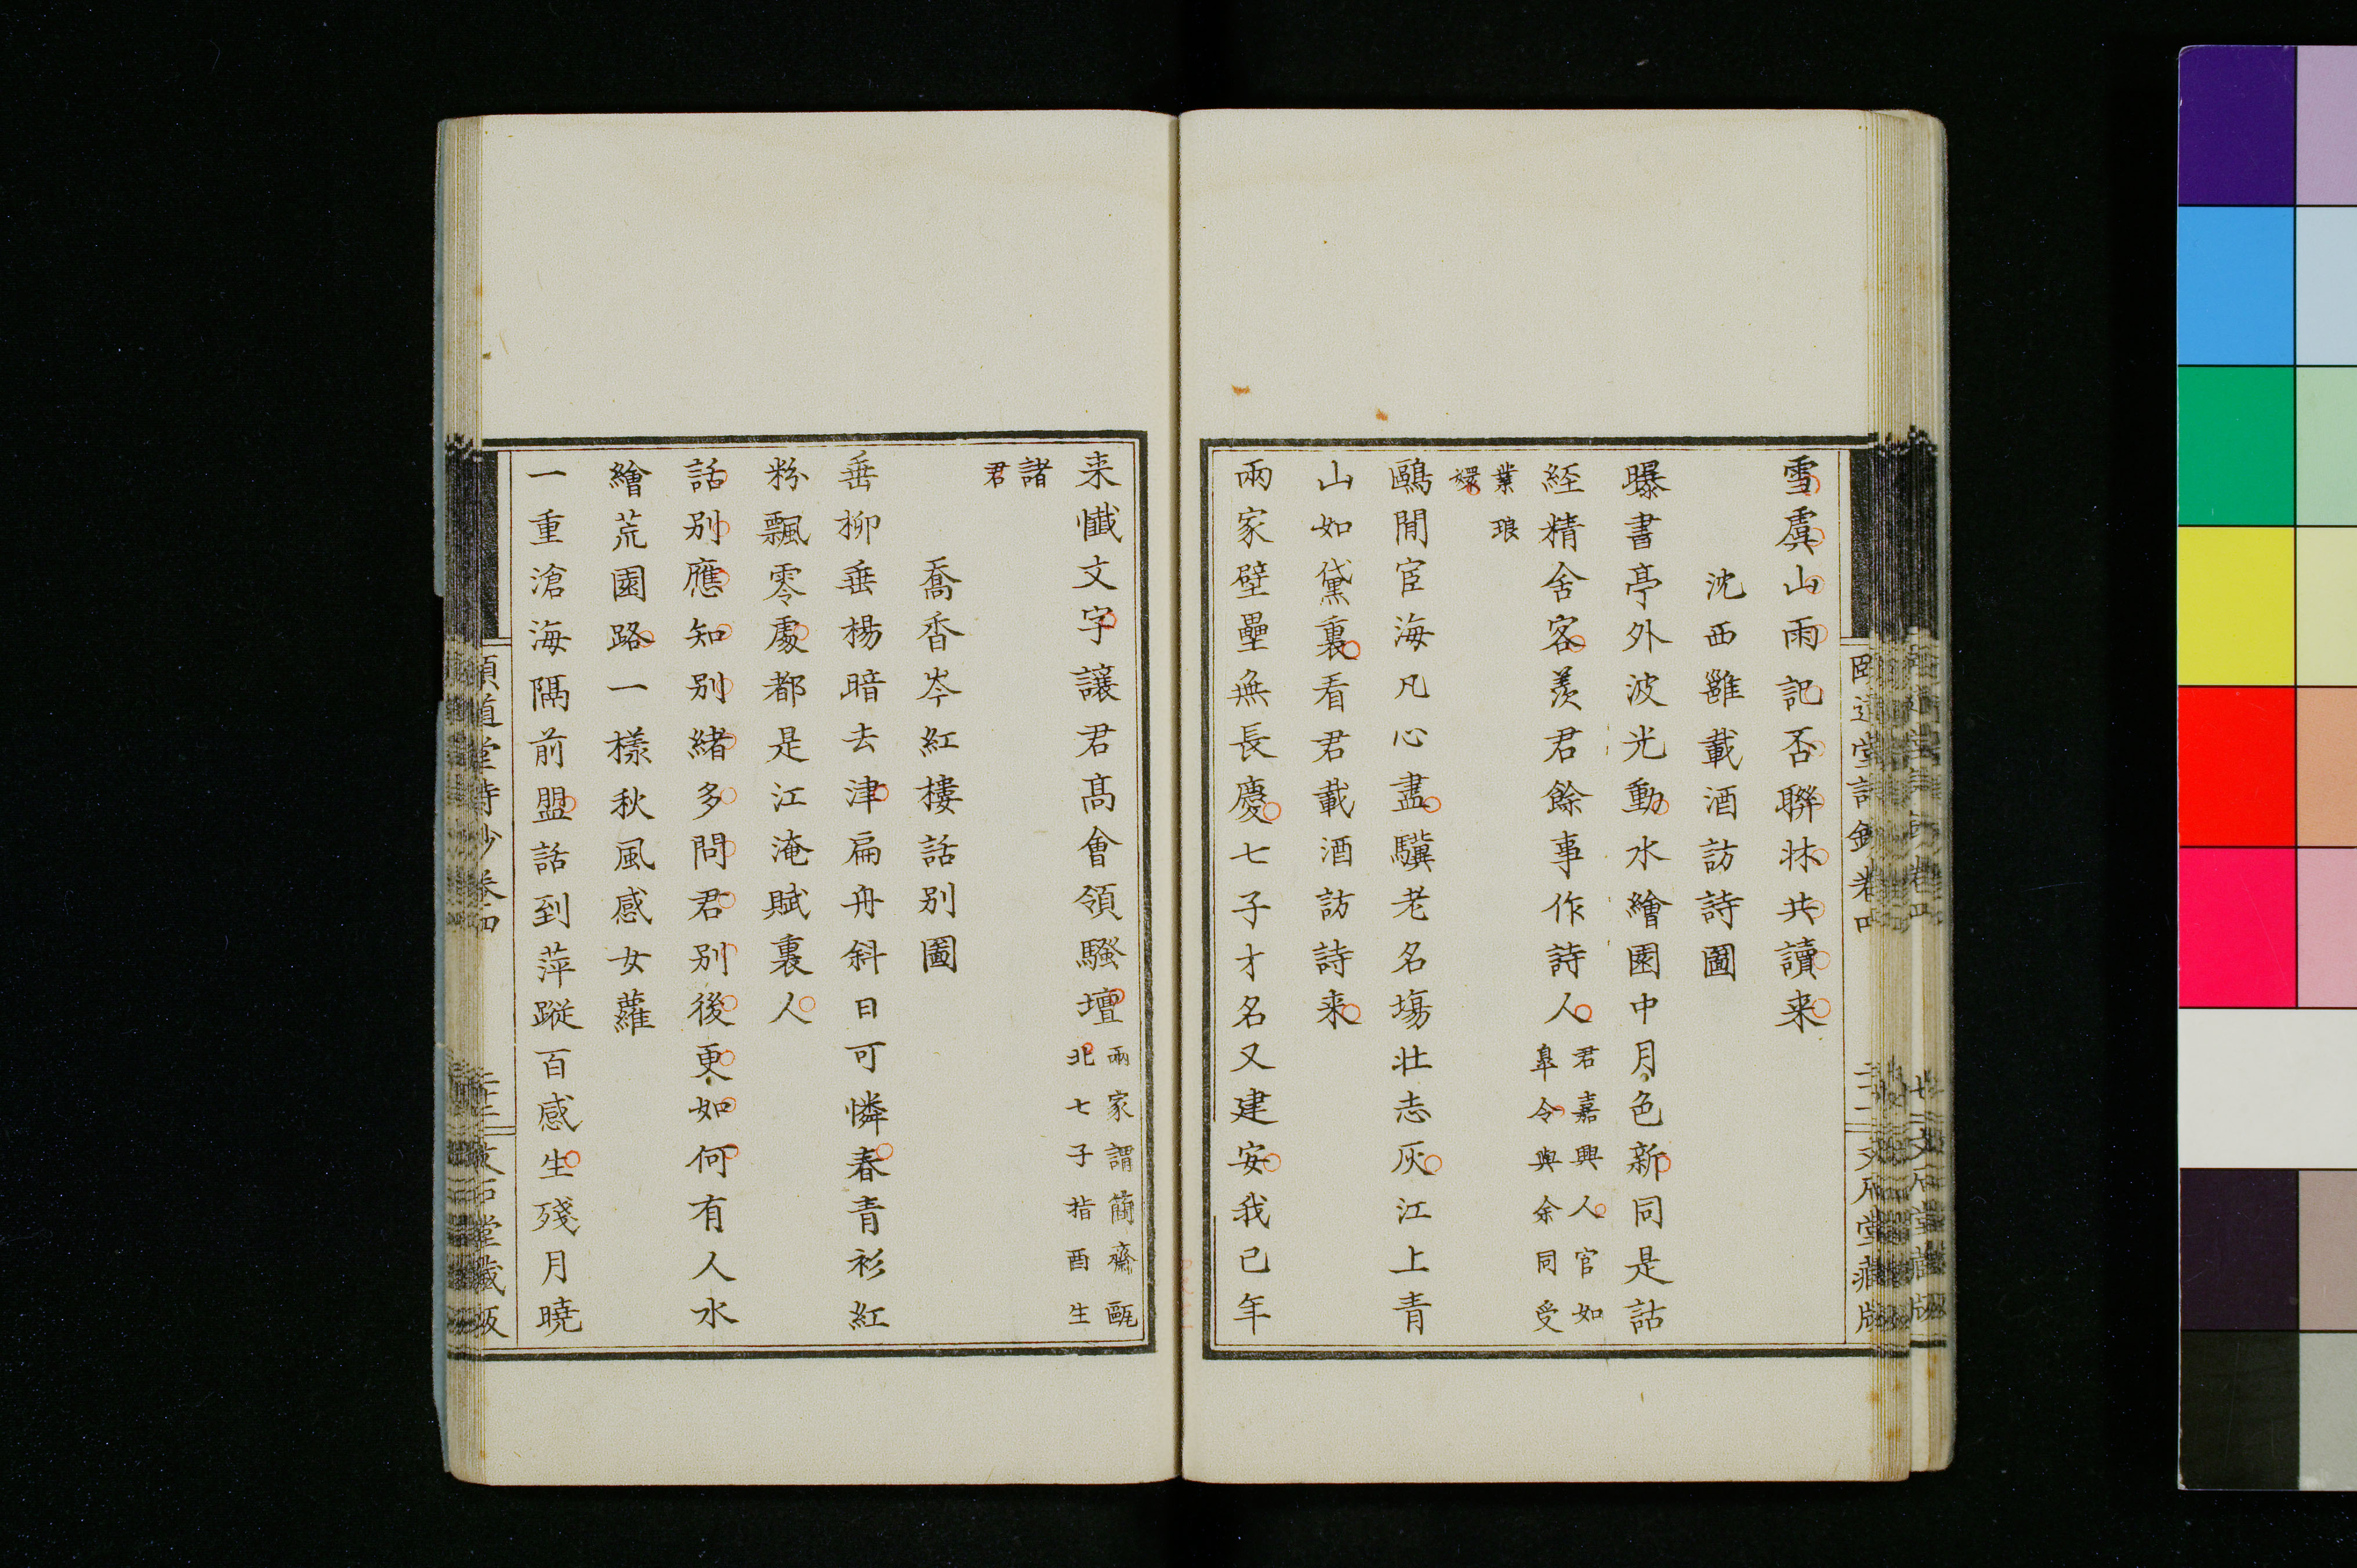 雪虞山雨記否聯牀共讀来
沈西雝載酒訪詩圖
曝書亭外波光動水繪園中月色新同是詁
經精舍客羨君餘事作詩人君嘉興人官如
皐令與余同受
業琅
嬛
鷗閒宦海凡心盡驥老名塲壯志灰江上青
山如黛裏看君載酒訪詩来
兩家壁壘無長慶七子才名又建安我已年
来懺文字讓君髙會領騷壇兩家謂蘭齋甌
北七子指酉生
諸
君
喬香岑紅樓話别圖
垂柳垂楊暗去津扁舟斜日可憐春青衫紅
粉飄零處都是江淹賦裏人
話别應知别緒多問君别後更如何有人水
繪荒園路一樣秋風感女蘿
一重滄海隔前盟話到萍蹤百感生殘月曉
頤道堂詩鈔卷四